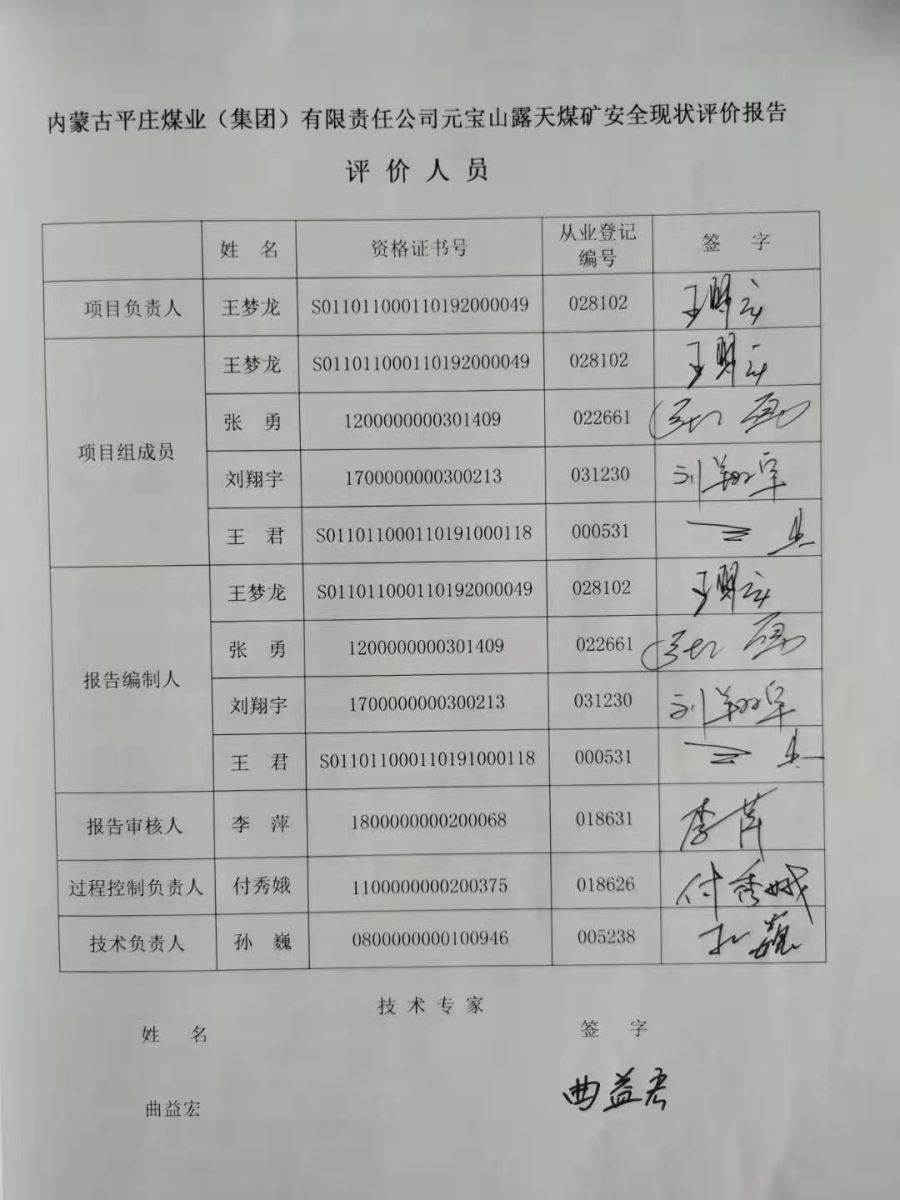 内蒙古平庄煤业（集团）有限责任公司元宝山露天煤矿安全现状评价报告
评价人员
姓 名 资格证书号 从业登记编号 签 字
项目负责人 王梦龙 S011011000110192000049 028102 王梦龙
项目组成员 王梦龙 S011011000110192000049 028102 王梦龙
张 勇 1200000000301409 022661 张勇
刘翔宇 1700000000300213 031230 刘翔宇
王 君 S011011000110191000118 000531 王君
报告编制人 王梦龙 S011011000110192000049 028102 王梦龙
张 勇 1200000000301409 022661 张勇
刘翔宇 1700000000300213 031230 刘翔宇
王 君 S011011000110191000118 000531 王君
报告审核人 李 萍 1800000000200068 018631 李萍
过程控制负责人 付秀娥 1100000000200375 018626 付秀娥
技术负责人 孙 巍 0800000000100946 005238 孙巍
技术专家
姓 名 签 字
曲益宏 曲益宏